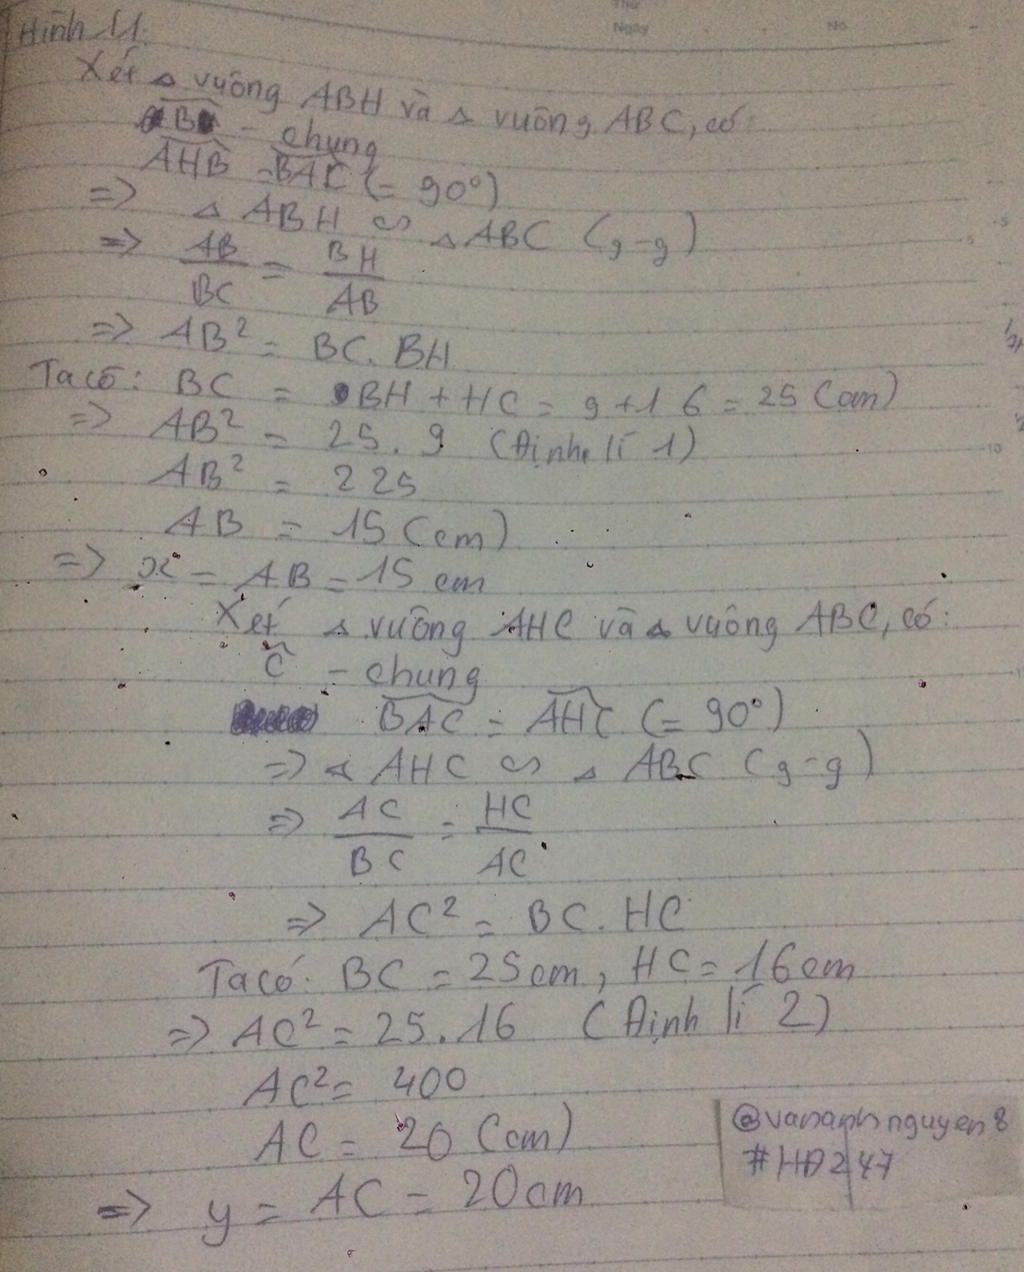 Thứ
Ngày No.
Hình 11.
Xét Δ vuông ABH và Δ vuông ABC, có:
B - chung
AHB = BAC (= 90°)
=> Δ ABH ∽ Δ ABC (g-g)
=> AB/BC = BH/AB
=> AB² = BC. BH
Ta có: BC = BH + HC = 9 + 16 = 25 (cm)
=> AB² = 25. 9 (Định lí 1)
AB² = 225
AB = 15 (cm)
=> x = AB = 15 cm
Xét Δ vuông AHC và Δ vuông ABC, có:
Ĉ - chung
BAC = AHC (= 90°)
=> Δ AHC ∽ Δ ABC (g-g)
=> AC/BC = HC/AC
=> AC² = BC. HC
Ta có: BC = 25cm, HC = 16cm
=> AC² = 25.16 (Định lí 2)
AC² = 400
AC = 20 (cm)
=> y = AC = 20cm
@vananhnguyen8
#HD247